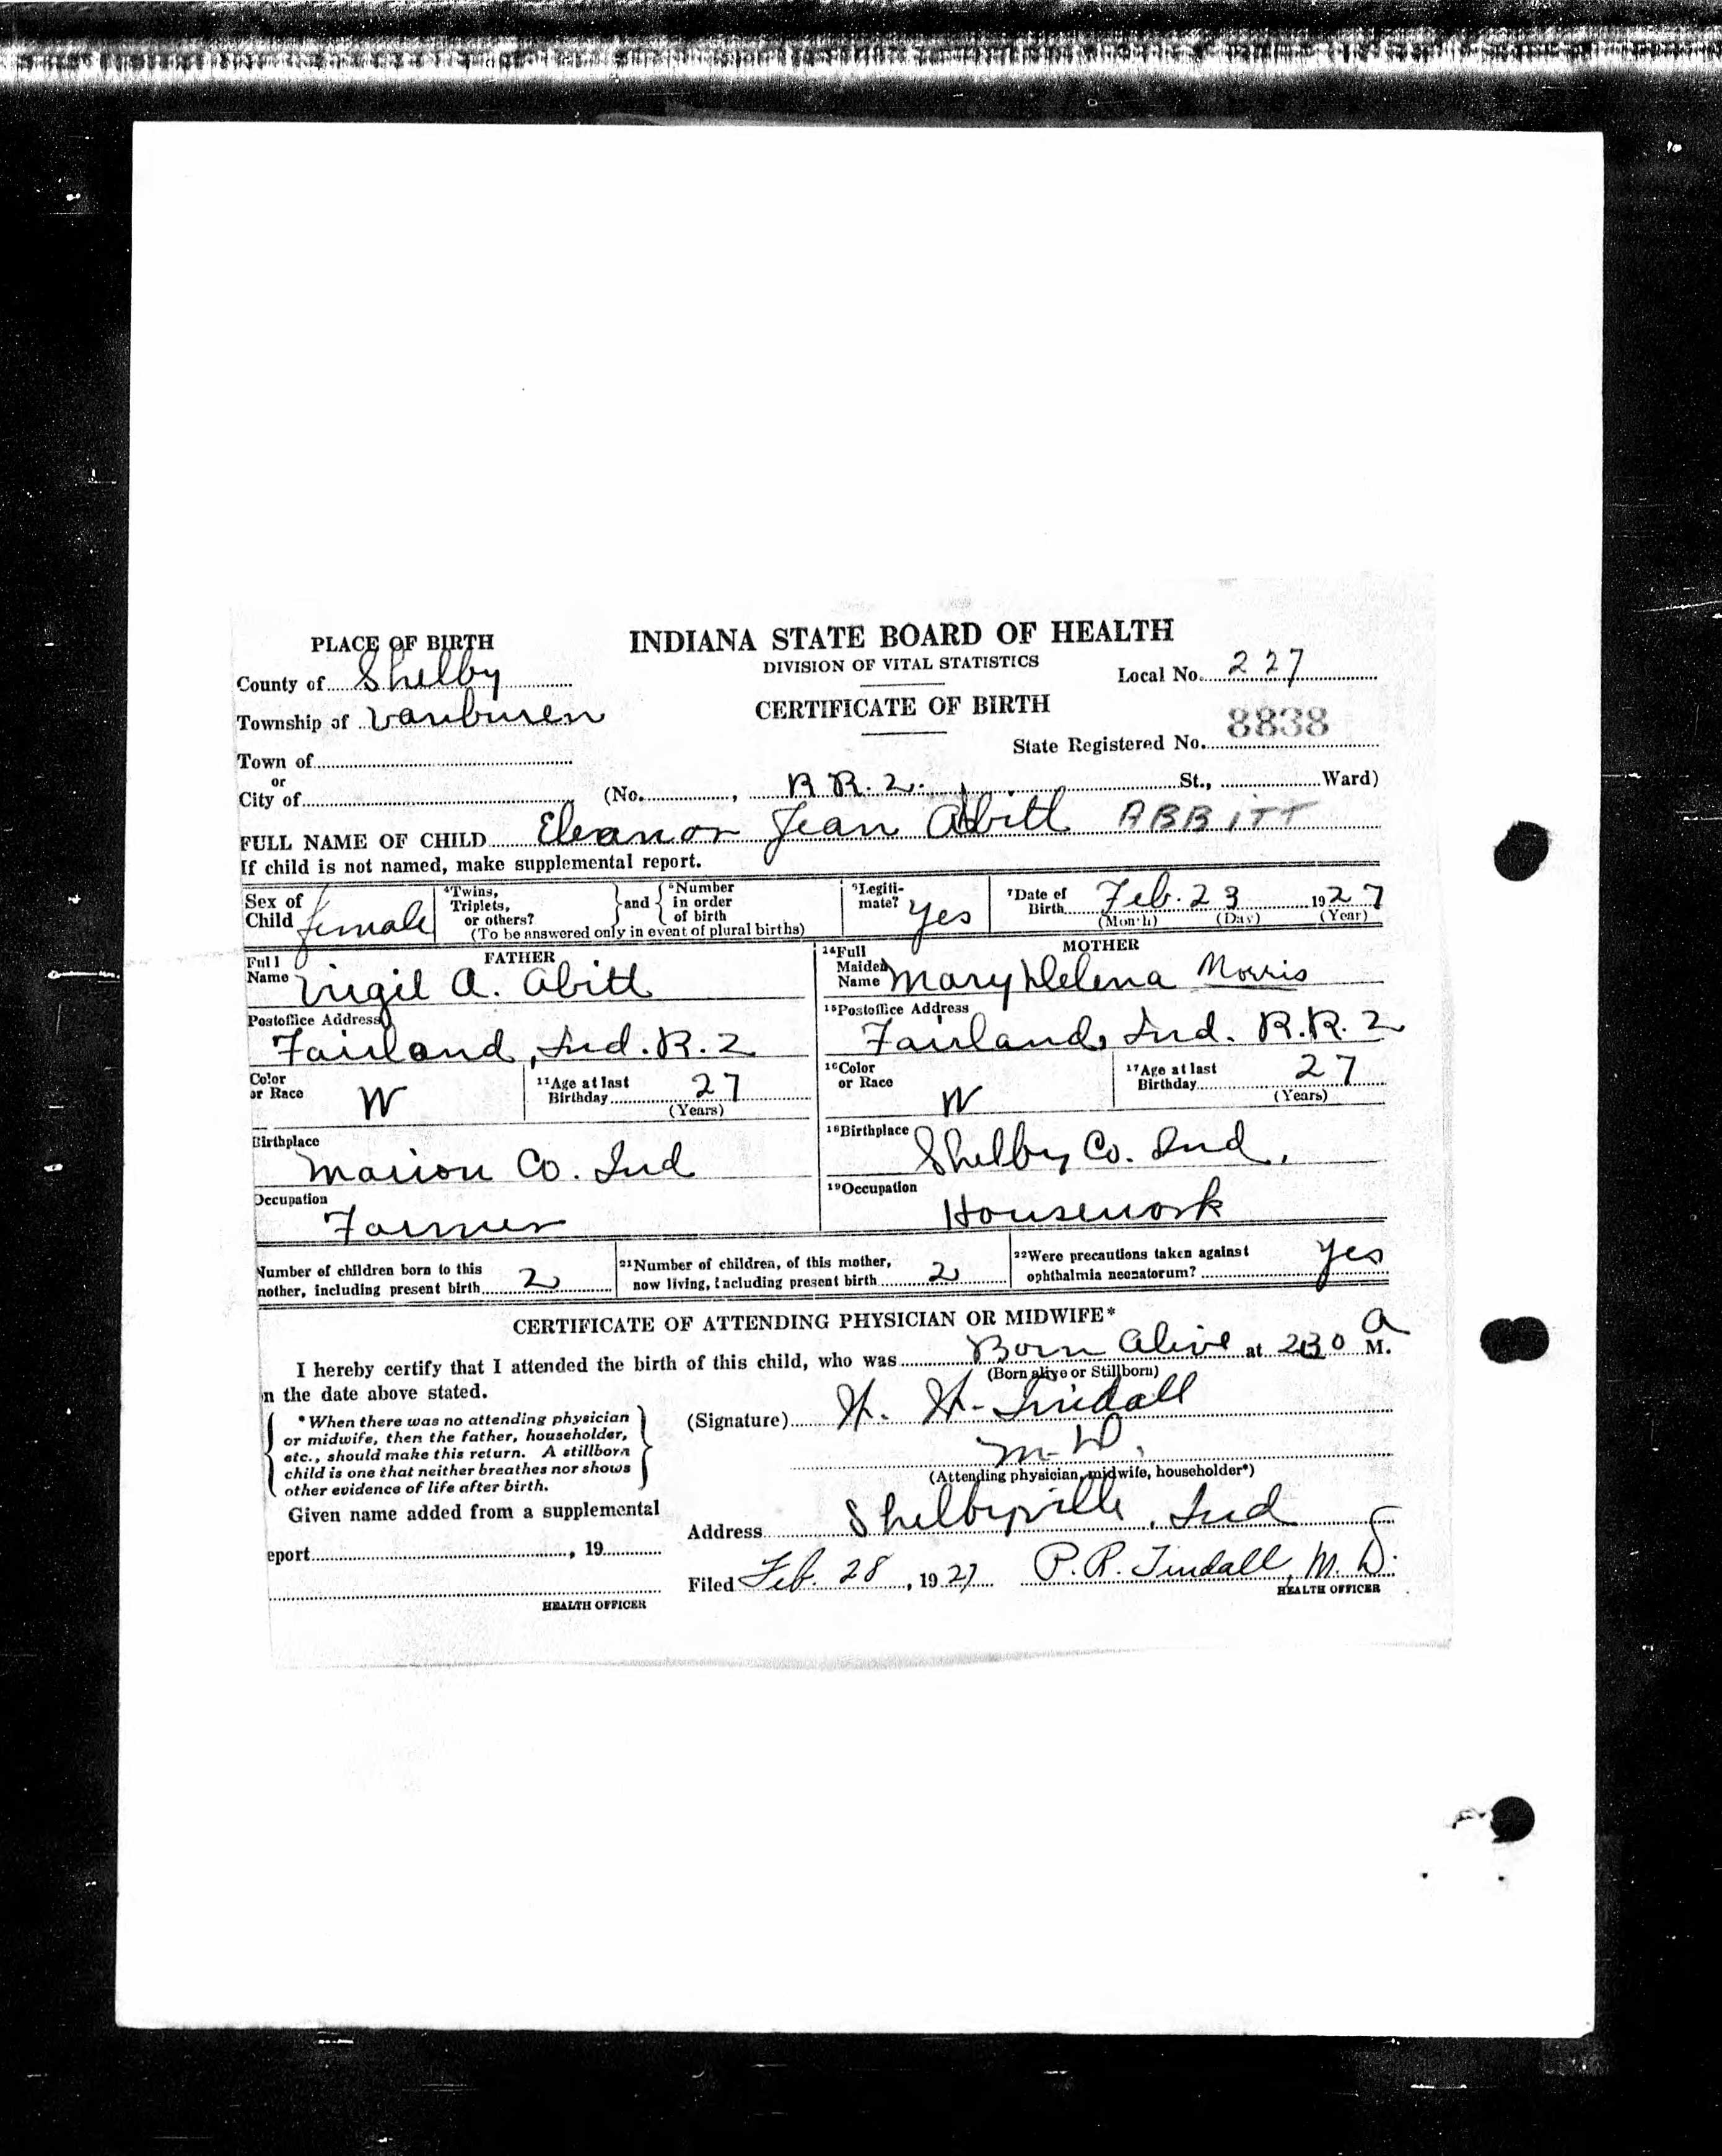 PLACE OF BIRTH
INDIANA STATE BOARD OF HEALTH
DIVISION OF VITAL STATISTICS
County of Shelby
Local No. 227
Township of Vanburen
CERTIFICATE OF BIRTH
8838
State Registered No.
Town of
or
City of (No. , R R. 2. St., Ward)
FULL NAME OF CHILD Eleanor Jean Abbitt ABBITT
If child is not named, make supplemental report.
Sex of Child female
4Twins, Triplets, or others? } and { 5Number in order of birth
(To be answered only in event of plural births)
Legiti-mate? Yes
7Date of Birth Feb. 23 1927
(Month) (Day) (Year)
FATHER
Full Name Virgil A. Abitt
Postoffice Address
Fairland, Ind. R. 2
Color or Race W
11Age at last Birthday 27
(Years)
Birthplace
Marion Co. Ind
Occupation
Farmer
MOTHER
14Full Maiden Name Mary Helena Morris
15Postoffice Address
Fairland, Ind. R.R. 2
16Color or Race W
17Age at last Birthday 27
(Years)
18Birthplace
Shelby Co. Ind.
19Occupation
Housework
Number of children born to this
nother, including present birth 2
21Number of children, of this mother,
now living, including present birth 2
22Were precautions taken against
ophthalmia neonatorum? Yes
CERTIFICATE OF ATTENDING PHYSICIAN OR MIDWIFE*
I hereby certify that I attended the birth of this child, who was Born Alive at 230 A M.
(Born alive or Stillborn)
n the date above stated.
* When there was no attending physician
or midwife, then the father, householder,
etc., should make this return. A stillborn
child is one that neither breathes nor shows
other evidence of life after birth.
(Signature) H. H. Tindall
M.D.
(Attending physician, midwife, householder*)
Given name added from a supplemental
eport , 19
HEALTH OFFICER
Address Shelbyville, Ind
Filed Feb. 28, 1927 P. R. Tindall, M.D.
HEALTH OFFICER